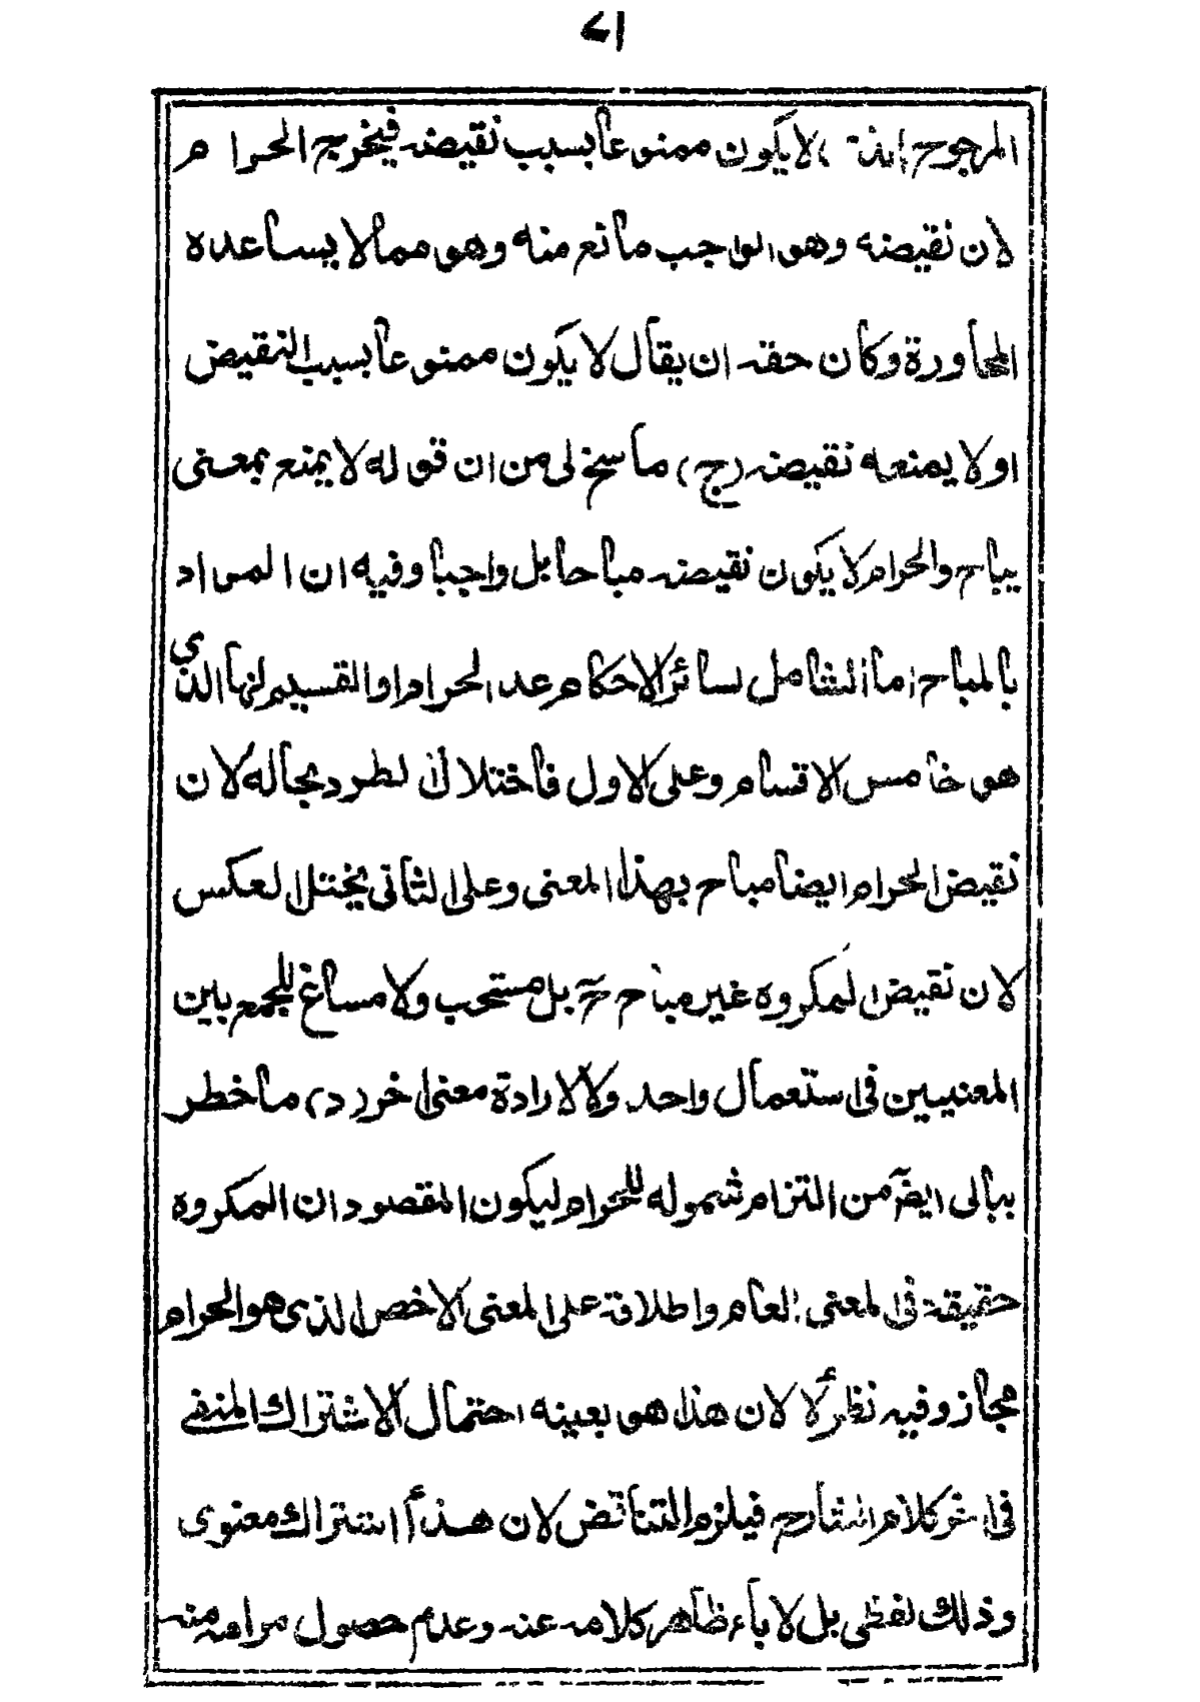 المرجوح لا يكون ممنوعا بسبب نقيضه فيخرج الحرام
لان نقيضه وهو الواجب مانع منه وهو مما لا يساعده
المحاورة وكان حقه ان يقال لا يكون ممنوعا بسبب النقيض
او لا يمنعه نقيضه (ج) ما سنح لى من ان قوله لا يمنع بمعنى
يباح والحرام لا يكون نقيضه مباحا بل واجبا وفيه ان المراد
بالمباح اما الشامل لسائر الاحكام عد الحرام او القسيم لها الذى
هو خامس الاقسام وعلى الاول فاختلال لطرد بحاله لان
نقيض الحرام ايضا مباح بهذا المعنى وعلى الثانى يختل العكس
لان نقيض المكروه غير مباح ح بل مستحب ولا مساغ للجمع بين
المعنيين فى استعمال واحد ولا لارادة معنى اخر (د) ما خطر
ببالى ايضا من التزام شموله للحرام ليكون المقصود ان المكروه
حقيقة فى المعنى العام واطلاقه على المعنى الاخص الذى هو الحرام
مجاز وفيه نظر لا لان هذا هو بعينه احتمال الاشتراك المنفى
فى اخر كلام الشارح فيلزم التناقض لان هذا اشتراك معنوى
وذلك لفظى بل لاباء ظاهر كلامه عنه وعدم حصول مرامه منه